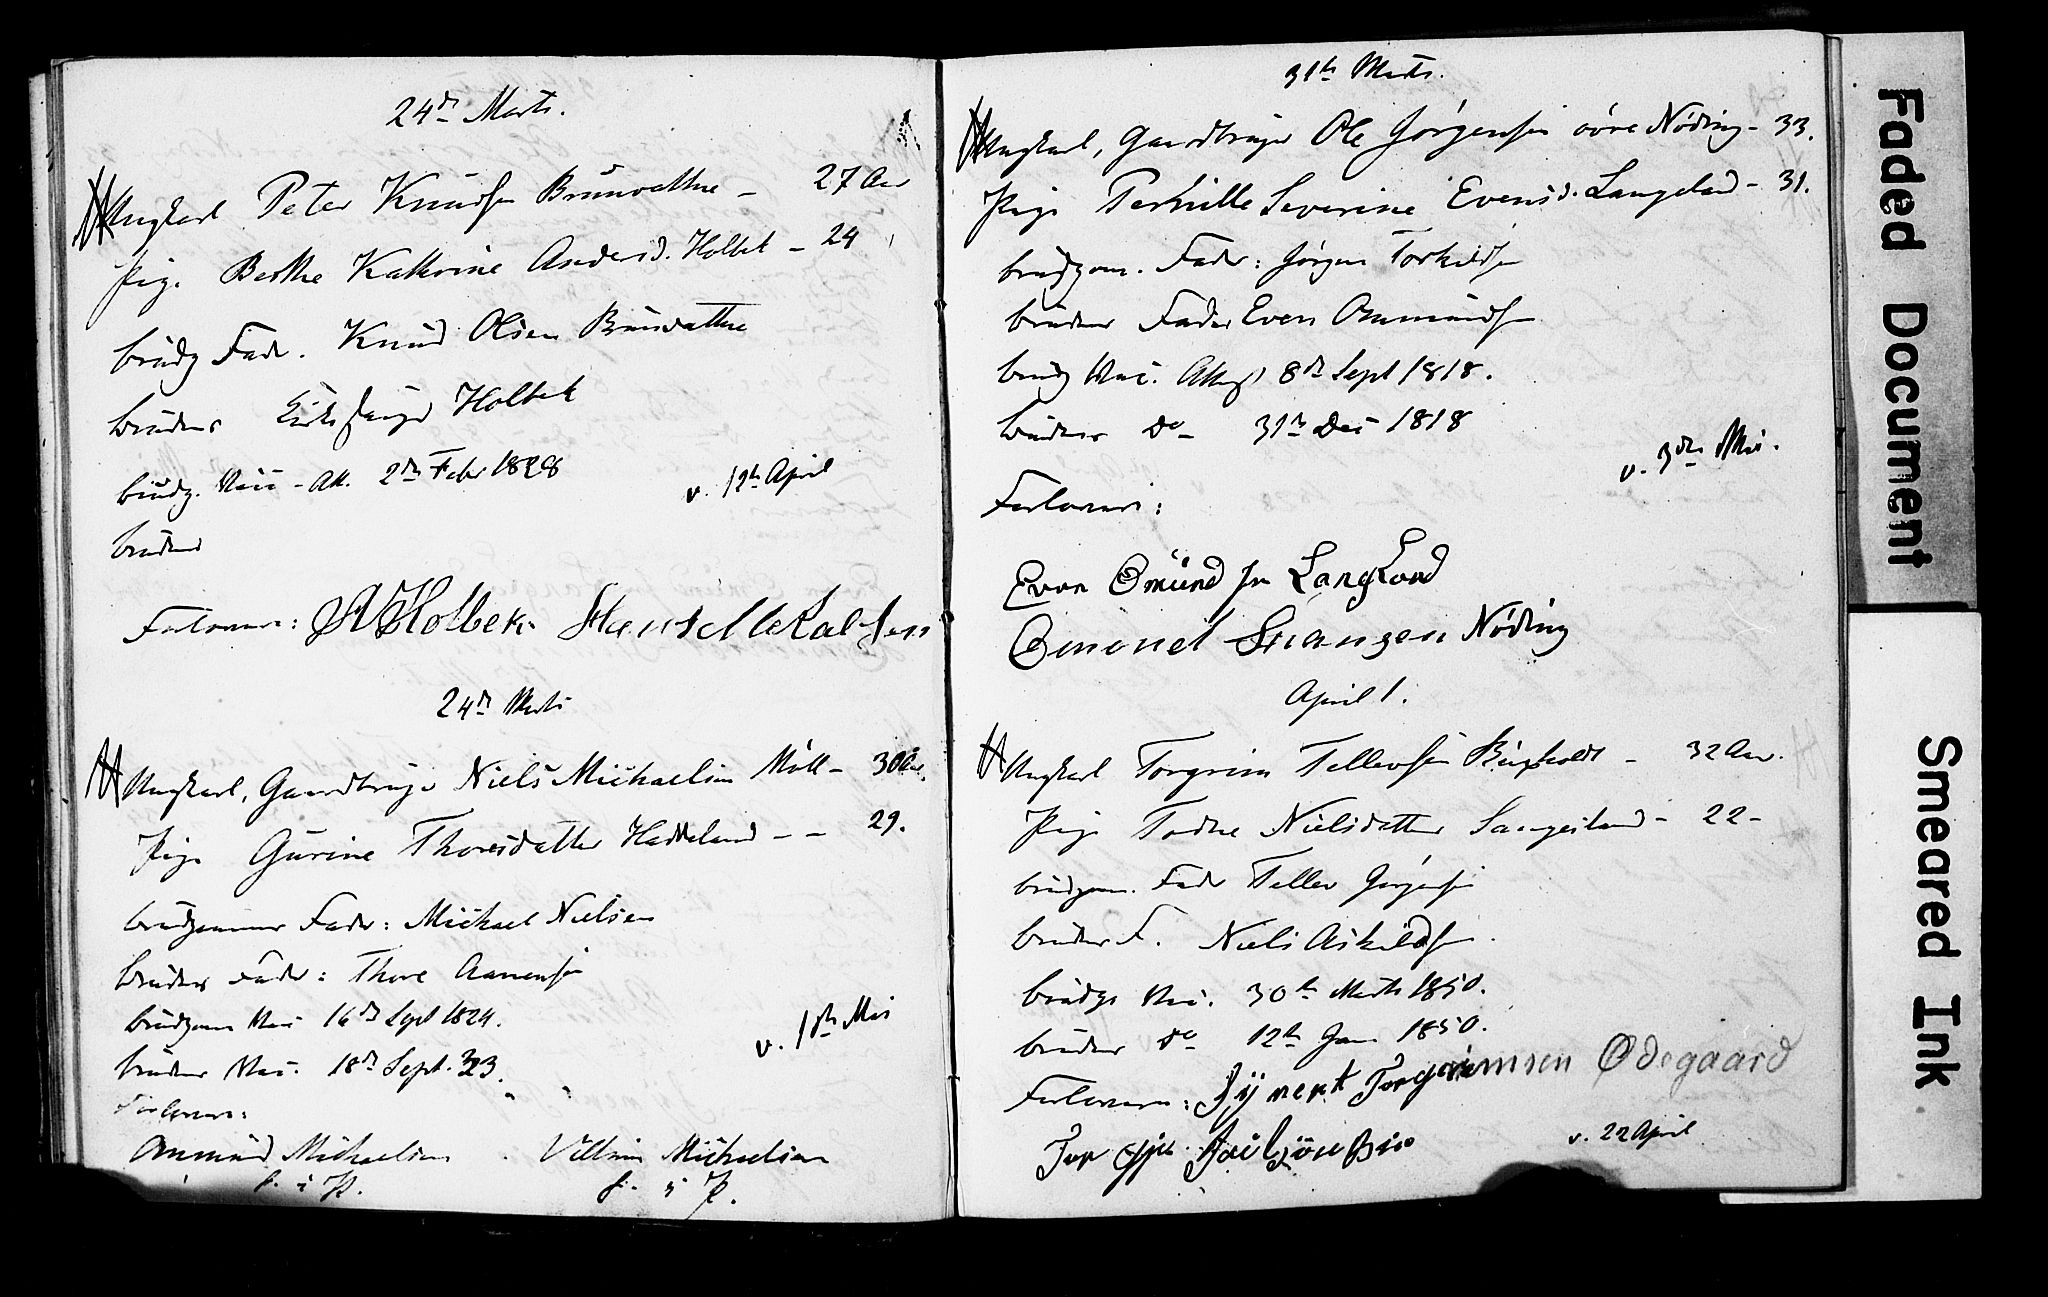 24de Marts.
Ungkarl Peter Knudsen Brunvathne - 27 Aar
Pige Berthe Kathrine Andersd. Holbek - 24
brudg Fader. Knud Olsen Brunvathne
brudens Holbek
brudg. Vacc. Att. 2de Febr 1828
v. 12te April
brudens
Forlovere: A Holbek
24de Marts
Ungkarl, Gaardbruger Niels Michaelsen Møll - 30 Aar.
Pige Gurine Thoresdatter Haddeland - - 29.
brudgommens Fader: Michael Nielsen
brudens Fader: Thore Aanensen
brudgoms Vacc 16de Sept 1824.
v. 1ste Mai
brudens Vacc. 18de Sept. 23.
Forlovere:
Ommund Michaelsen Villum Michaelsen
f. i P. f. i P.
31te Marts.
Ungkarl, Gaardbruger Ole Jørgensen øvre Nøding - 33.
Pige Pernille Severine Evensd. Langeland - 31.
brudgom. Fader: Jørgen Torkildsen
brudens Fader Even Ommundsen
brudg Vacc. Attest 8de Sept 1818.
brudens do - 31te Dec 1818
v. 3die Mai.
Forlovere:
Even Omund sn LangLand
Omond Nøding
April 1.
Ungkarl Torgrim Tellevsen - 32 Aar.
Pige Torne Nielsdatter Langeland - 22 -
brudgom. Fader Tellev Jørgensen
brudens F. Niels Askildsen.
brudgs Vacc. 30te Marts 1850.
brudens do 12te Jan 1850.
Forlovere: Torgrimsen Ødegaard
v. 22 April
Faded Document
Smeared Ink